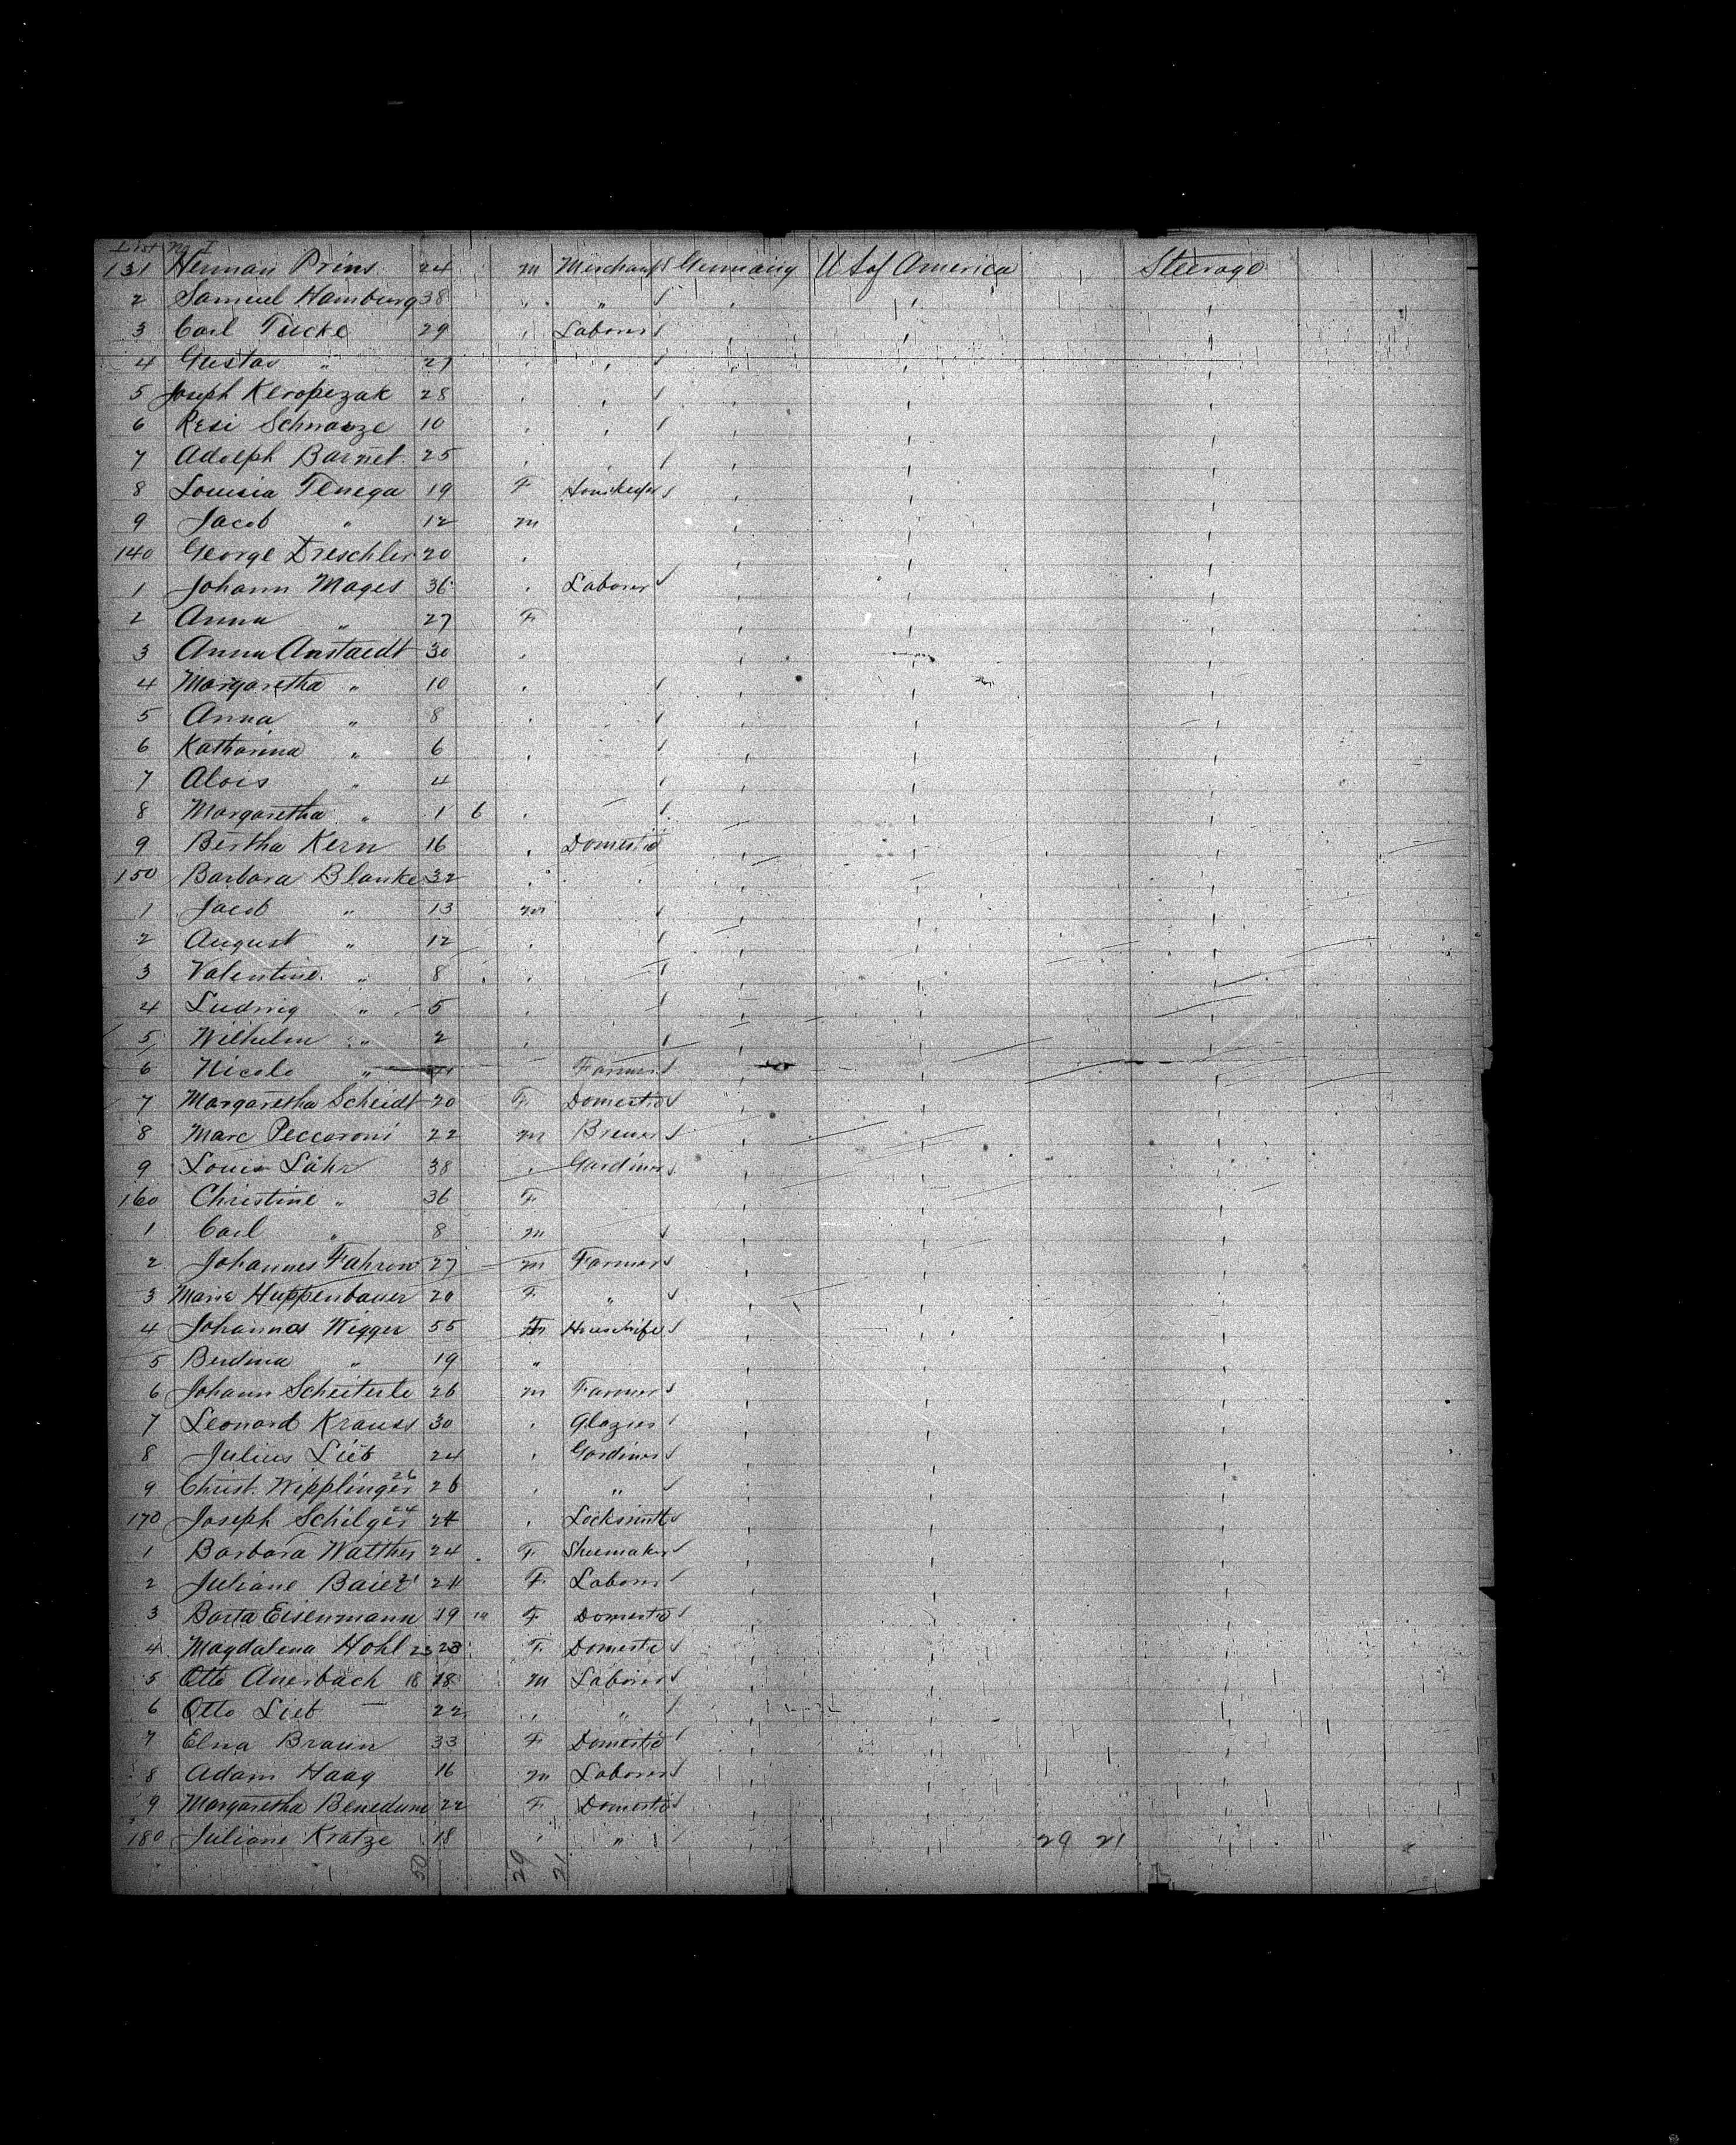 List No I
131 Herman Prins 24 m Merchant Germany U S of America Steerage
2 Samuel Hamburg 38 " "
3 Carl Tucke 29 " Laborer
4 Gustav " 27 " "
5 Joseph Kropezak 28 " "
6 Resi Schnauze 10 " "
7 Adolph Barnet 25 " "
8 Louisia Tenega 19 F
9 Jacob " 12 m
140 George Dreschler 20 "
1 Johann Mages 36 " Laborer
2 Anna " 27 F
3 Anna Anstaedt 30 "
4 Margaretha " 10 "
5 Anna " 8 "
6 Katharina " 6 "
7 Alois " 4 "
8 Margaretha " 1 6 "
9 Bertha Kern 16 " Domestic
150 Barbara Blanke 32 "
1 Jacob " 13 m
2 August " 12 "
3 Valentine " 8 "
4 Ludwig " 5 "
5 Wilhelm " 2 "
6 Nicolo " Farmer
7 Margaretha Scheidt 20 F Domestic
8 Marc Peccoroni 22 m Brewer
9 Louis Löhr 38 " Gardiner
160 Christine " 36 F
1 Carl " 8 m
2 Johannes Fahron 27 m Farmer
3 Marie Huppenbauer 20 F "
4 Johannes Wigger 55 Housewife
5 Berdina " 19 "
6 Johann Scheiterle 26 m Farmer
7 Leonard Krauss 30 " Glazier
8 Julius Lieb 24 " Gardiner
9 Christ. Wipplinger 26 26 " "
170 Joseph Schilger 24 24 " Locksmith
1 Barbara Walther 24 F Shumaker
2 Juliane Baier 21 21 F Laborer
3 Barta Eisenmann 19 19 F Domestic
4 Magdalena Hohl 23 23 F Domestic
5 Otto Auerbach 18 18 m Laborer
6 Otto Lieb 22 " "
7 Elna Braun 33 F Domestic
8 Adam Haag 16 m Laborer
9 Margaretha Benedum 22 F Domestic
180 Juliane Kratze 18 " " 29 21
50 29 21